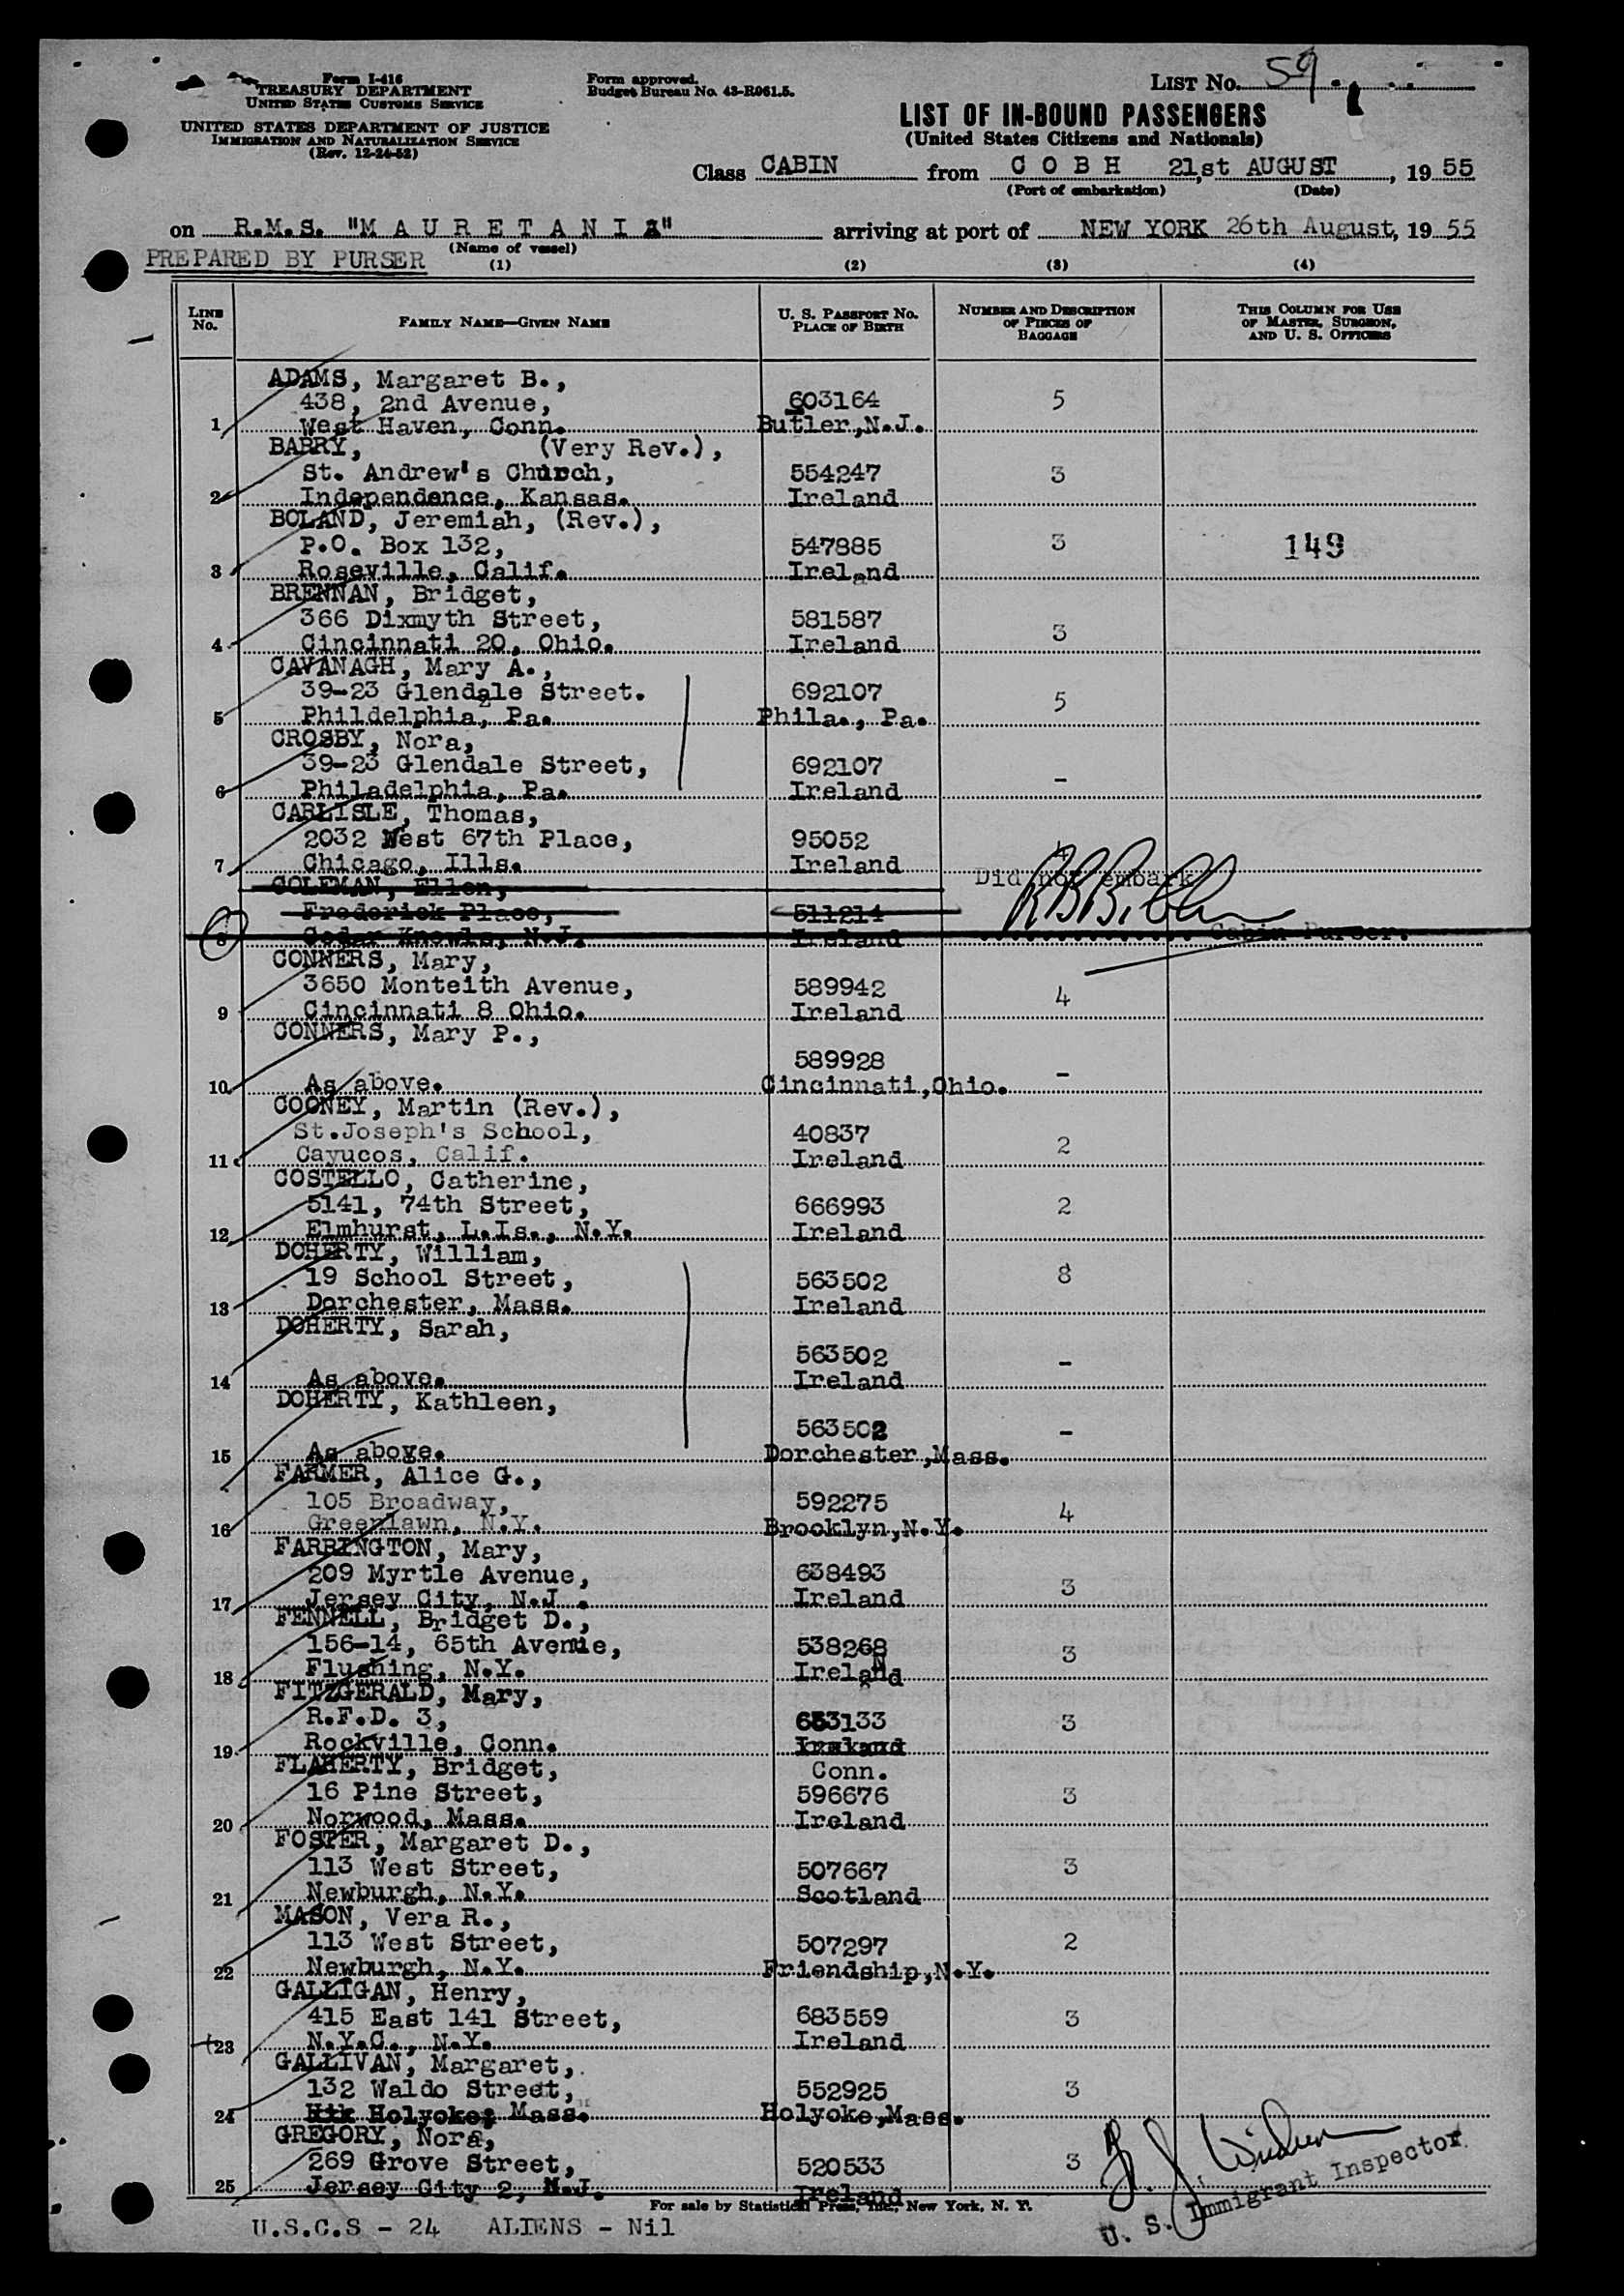 Form I-416
TREASURY DEPARTMENT
UNITED STATES CUSTOMS SERVICE
UNITED STATES DEPARTMENT OF JUSTICE
IMMIGRATION AND NATURALIZATION SERVICE
(Rev. 12-24-52)
Form approved.
Budget Bureau No. 43-R061.5.
LIST No. 59
LIST OF IN-BOUND PASSENGERS
(United States Citizens and Nationals)
Class CABIN from C O B H 21st AUGUST, 19 55
(Port of embarkation) (Date)
on R.M.S. "M A U R E T A N I A" arriving at port of NEW YORK 26th August, 19 55
(Name of vessel)
PREPARED BY PURSER
(1) (2) (3) (4)
LINE No. FAMILY NAME—GIVEN NAME U. S. PASSPORT No. PLACE OF BIRTH NUMBER AND DESCRIPTION OF PIECES OF BAGGAGE THIS COLUMN FOR USE OF MASTER, SURGEON, AND U. S. OFFICERS
ADAMS, Margaret B.,
438, 2nd Avenue, 603164 5
1 West Haven, Conn. Butler,N.J.
BARRY, (Very Rev.),
St. Andrew's Church, 554247 3
2 Independence, Kansas. Ireland
BOLAND, Jeremiah, (Rev.),
P.O. Box 132, 547885 3 149
3 Roseville, Calif. Ireland
BRENNAN, Bridget,
366 Dixmyth Street, 581587 3
4 Cincinnati 20, Ohio. Ireland
CAVANAGH, Mary A.,
39-23 Glendale Street. 692107 5
5 Phildelphia, Pa. Phila., Pa.
CROSBY, Nora,
39-23 Glendale Street, 692107 -
6 Philadelphia, Pa. Ireland
CARLISLE, Thomas,
2032 West 67th Place, 95052 4
7 Chicago, Ills. Ireland
COLEMAN, Ellen, Did not embark
Frederick Place, 511214
8 Cedar Knowls, N.J. Ireland Cabin Purser.
CONNERS, Mary,
3650 Monteith Avenue, 589942 4
9 Cincinnati 8 Ohio. Ireland
CONNERS, Mary P.,
589928 -
10 As above. Cincinnati,Ohio.
COONEY, Martin (Rev.),
St.Joseph's School, 40837 2
11 Cayucos, Calif. Ireland
COSTELLO, Catherine,
5141, 74th Street, 666993 2
12 Elmhurst, L.Is., N.Y. Ireland
DOHERTY, William,
19 School Street, 563502 8
13 Dorchester, Mass. Ireland
DOHERTY, Sarah,
563502 -
14 As above. Ireland
DOHERTY, Kathleen,
563502 -
15 As above. Dorchester,Mass.
FARMER, Alice G.,
105 Broadway, 592275 4
16 Greenlawn, N.Y. Brooklyn,N.Y.
FARRINGTON, Mary,
209 Myrtle Avenue, 638493 3
17 Jersey City, N.J. Ireland
FENNELL, Bridget D.,
156-14, 65th Avenue, 538268 3
18 Flushing, N.Y. Ireland
FITZGERALD, Mary,
R.F.D. 3, 653133 3
19 Rockville, Conn. Ireland
FLAHERTY, Bridget, Conn.
16 Pine Street, 596676 3
20 Norwood, Mass. Ireland
FOSTER, Margaret D.,
113 West Street, 507667 3
21 Newburgh, N.Y. Scotland
MASON, Vera R.,
113 West Street, 507297 2
22 Newburgh, N.Y. Friendship,N.Y.
GALLIGAN, Henry,
415 East 141 Street, 683559 3
23 N.Y.C., N.Y. Ireland
GALLIVAN, Margaret,
132 Waldo Street, 552925 3
24 Holyoke, Mass. Holyoke,Mass.
GREGORY, Nora,
269 Grove Street, 520533 3
25 Jersey City 2, N.J. Ireland
U. S. Immigrant Inspector
For sale by Statistical Press, Inc., New York, N. Y.
U.S.C.S - 24 ALIENS - Nil